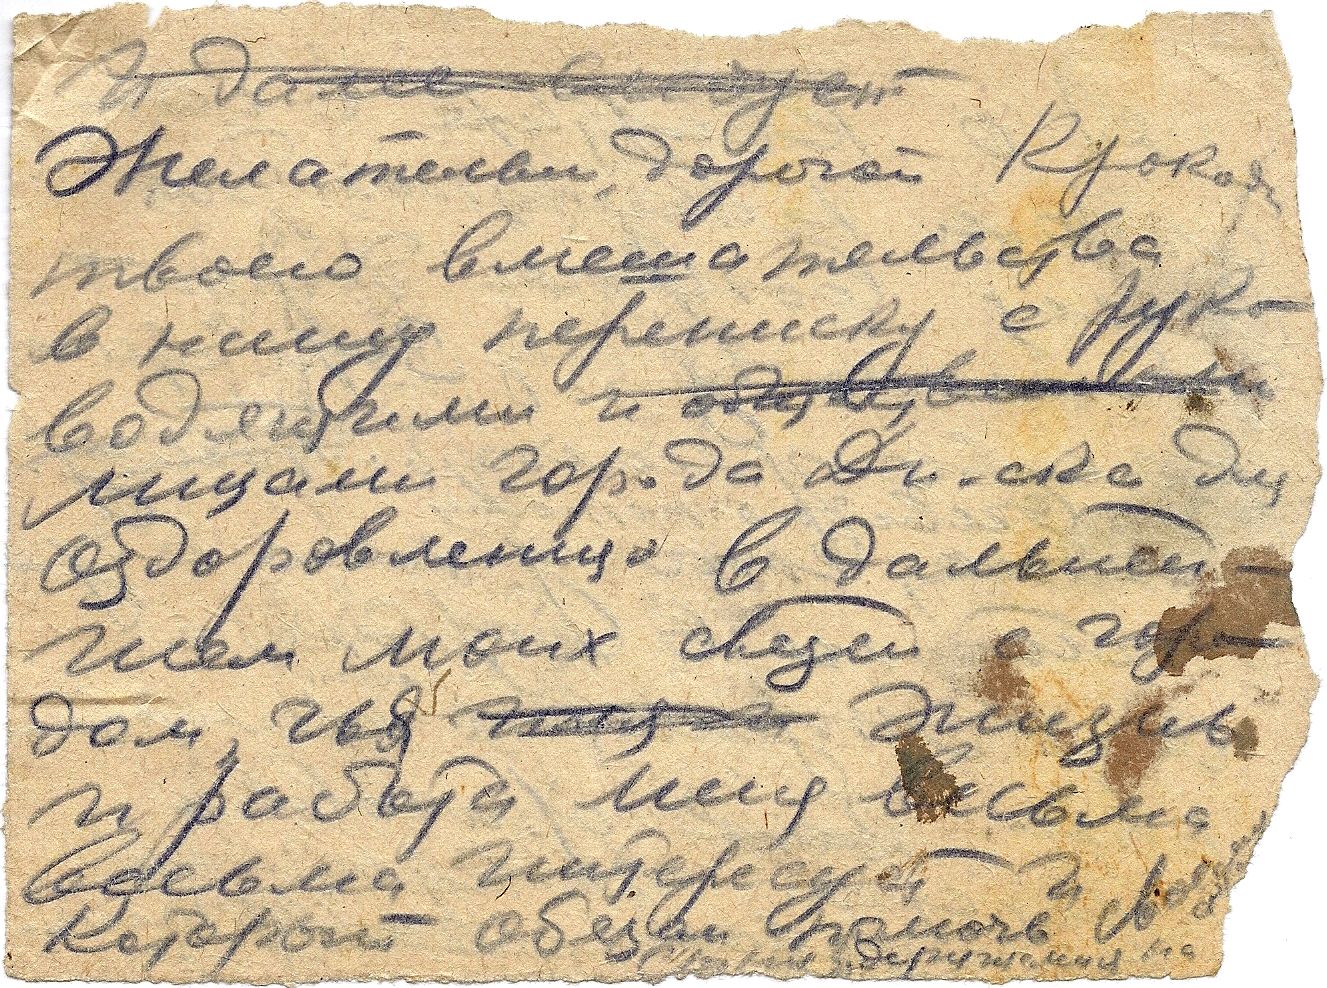 И далее следует
Желательно, дорогой Крокодил
твоего вмешательства
в нашу переписку с руко-
водящими и
лицами города Дн-ска для
оздоровления в дальней-
шем моих связей с горо-
дом, чья жизнь
и работа меня весьма
весьма интересует и
который обязан помочь